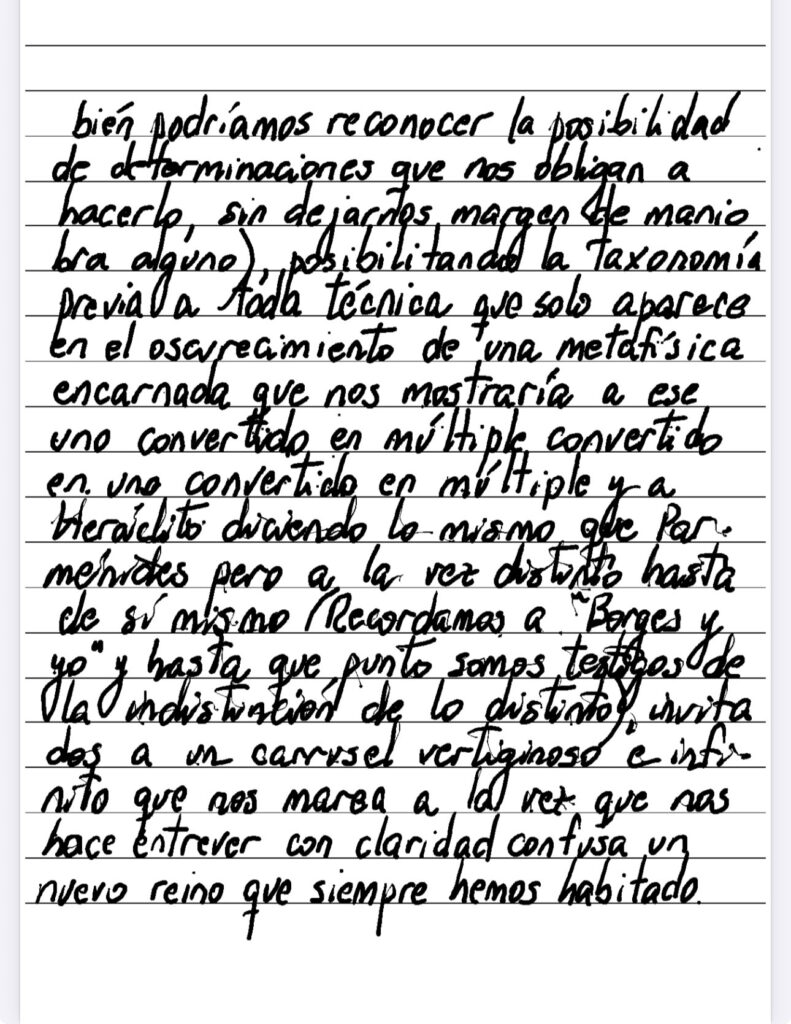 bién podríamos reconocer la posibilidad
de determinaciones que nos obligan a
hacerlo, sin dejarnos margen de manio
bra alguno), posibilitando la Taxonomía
previa a toda técnica que solo aparece
en el oscurecimiento de una metafísica
encarnada que nos mostraría a ese
uno convertido en múltiple convertido
en uno convertido en múltiple y a
Heráclito diciendo lo mismo que Par-
ménides pero a la vez distinto hasta
de sí mismo (Recordamos a "Borges y
yo" y hasta que punto somos testigos de
la indistinción de lo distinto), invita
dos a un carrusel vertiginoso e infi-
nito que nos marea a la vez que nos
hace entrever con claridad confusa un
nuevo reino que siempre hemos habitado.